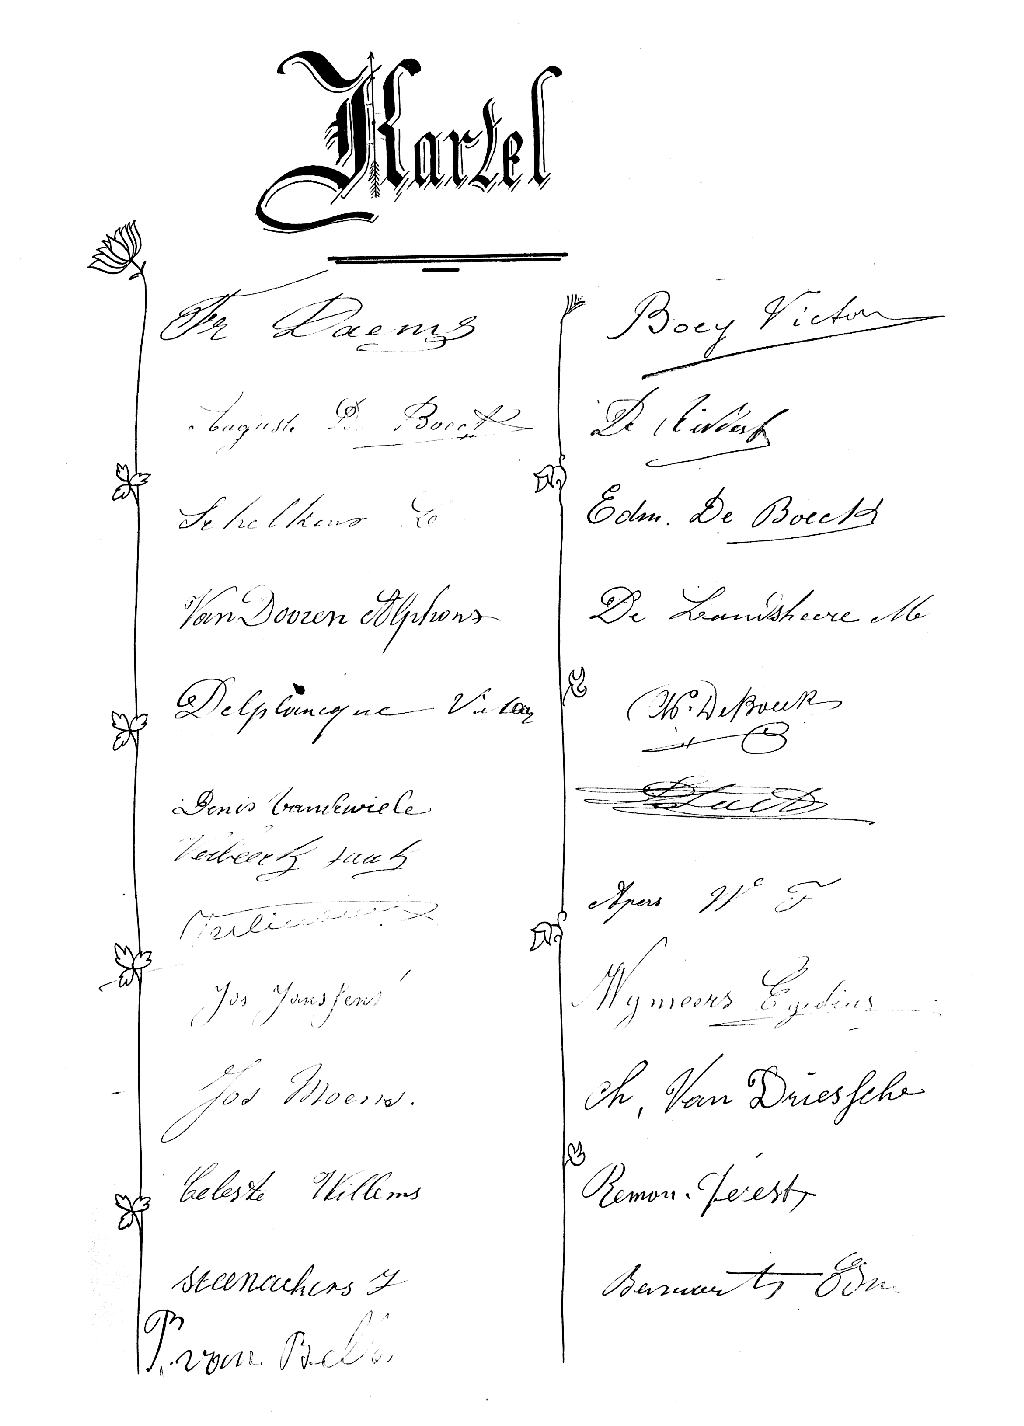 Kartel
Fr Daems
Auguste De Boeck
Schelkens
Van Dooren Alphons
Delplancque Victor
Denis Vandewiele
Verbeeck Isaak
Jos Janssens
Jos Moens.
Celeste Willems
Steenackers J
P. van Bell
Boey Victor
De
Edm. De Boeck
De Landsheere M
De Boeck
Apers F
Wymeers Egidius
Ch, Van Driessche
Remon.
Bernaerts Edm